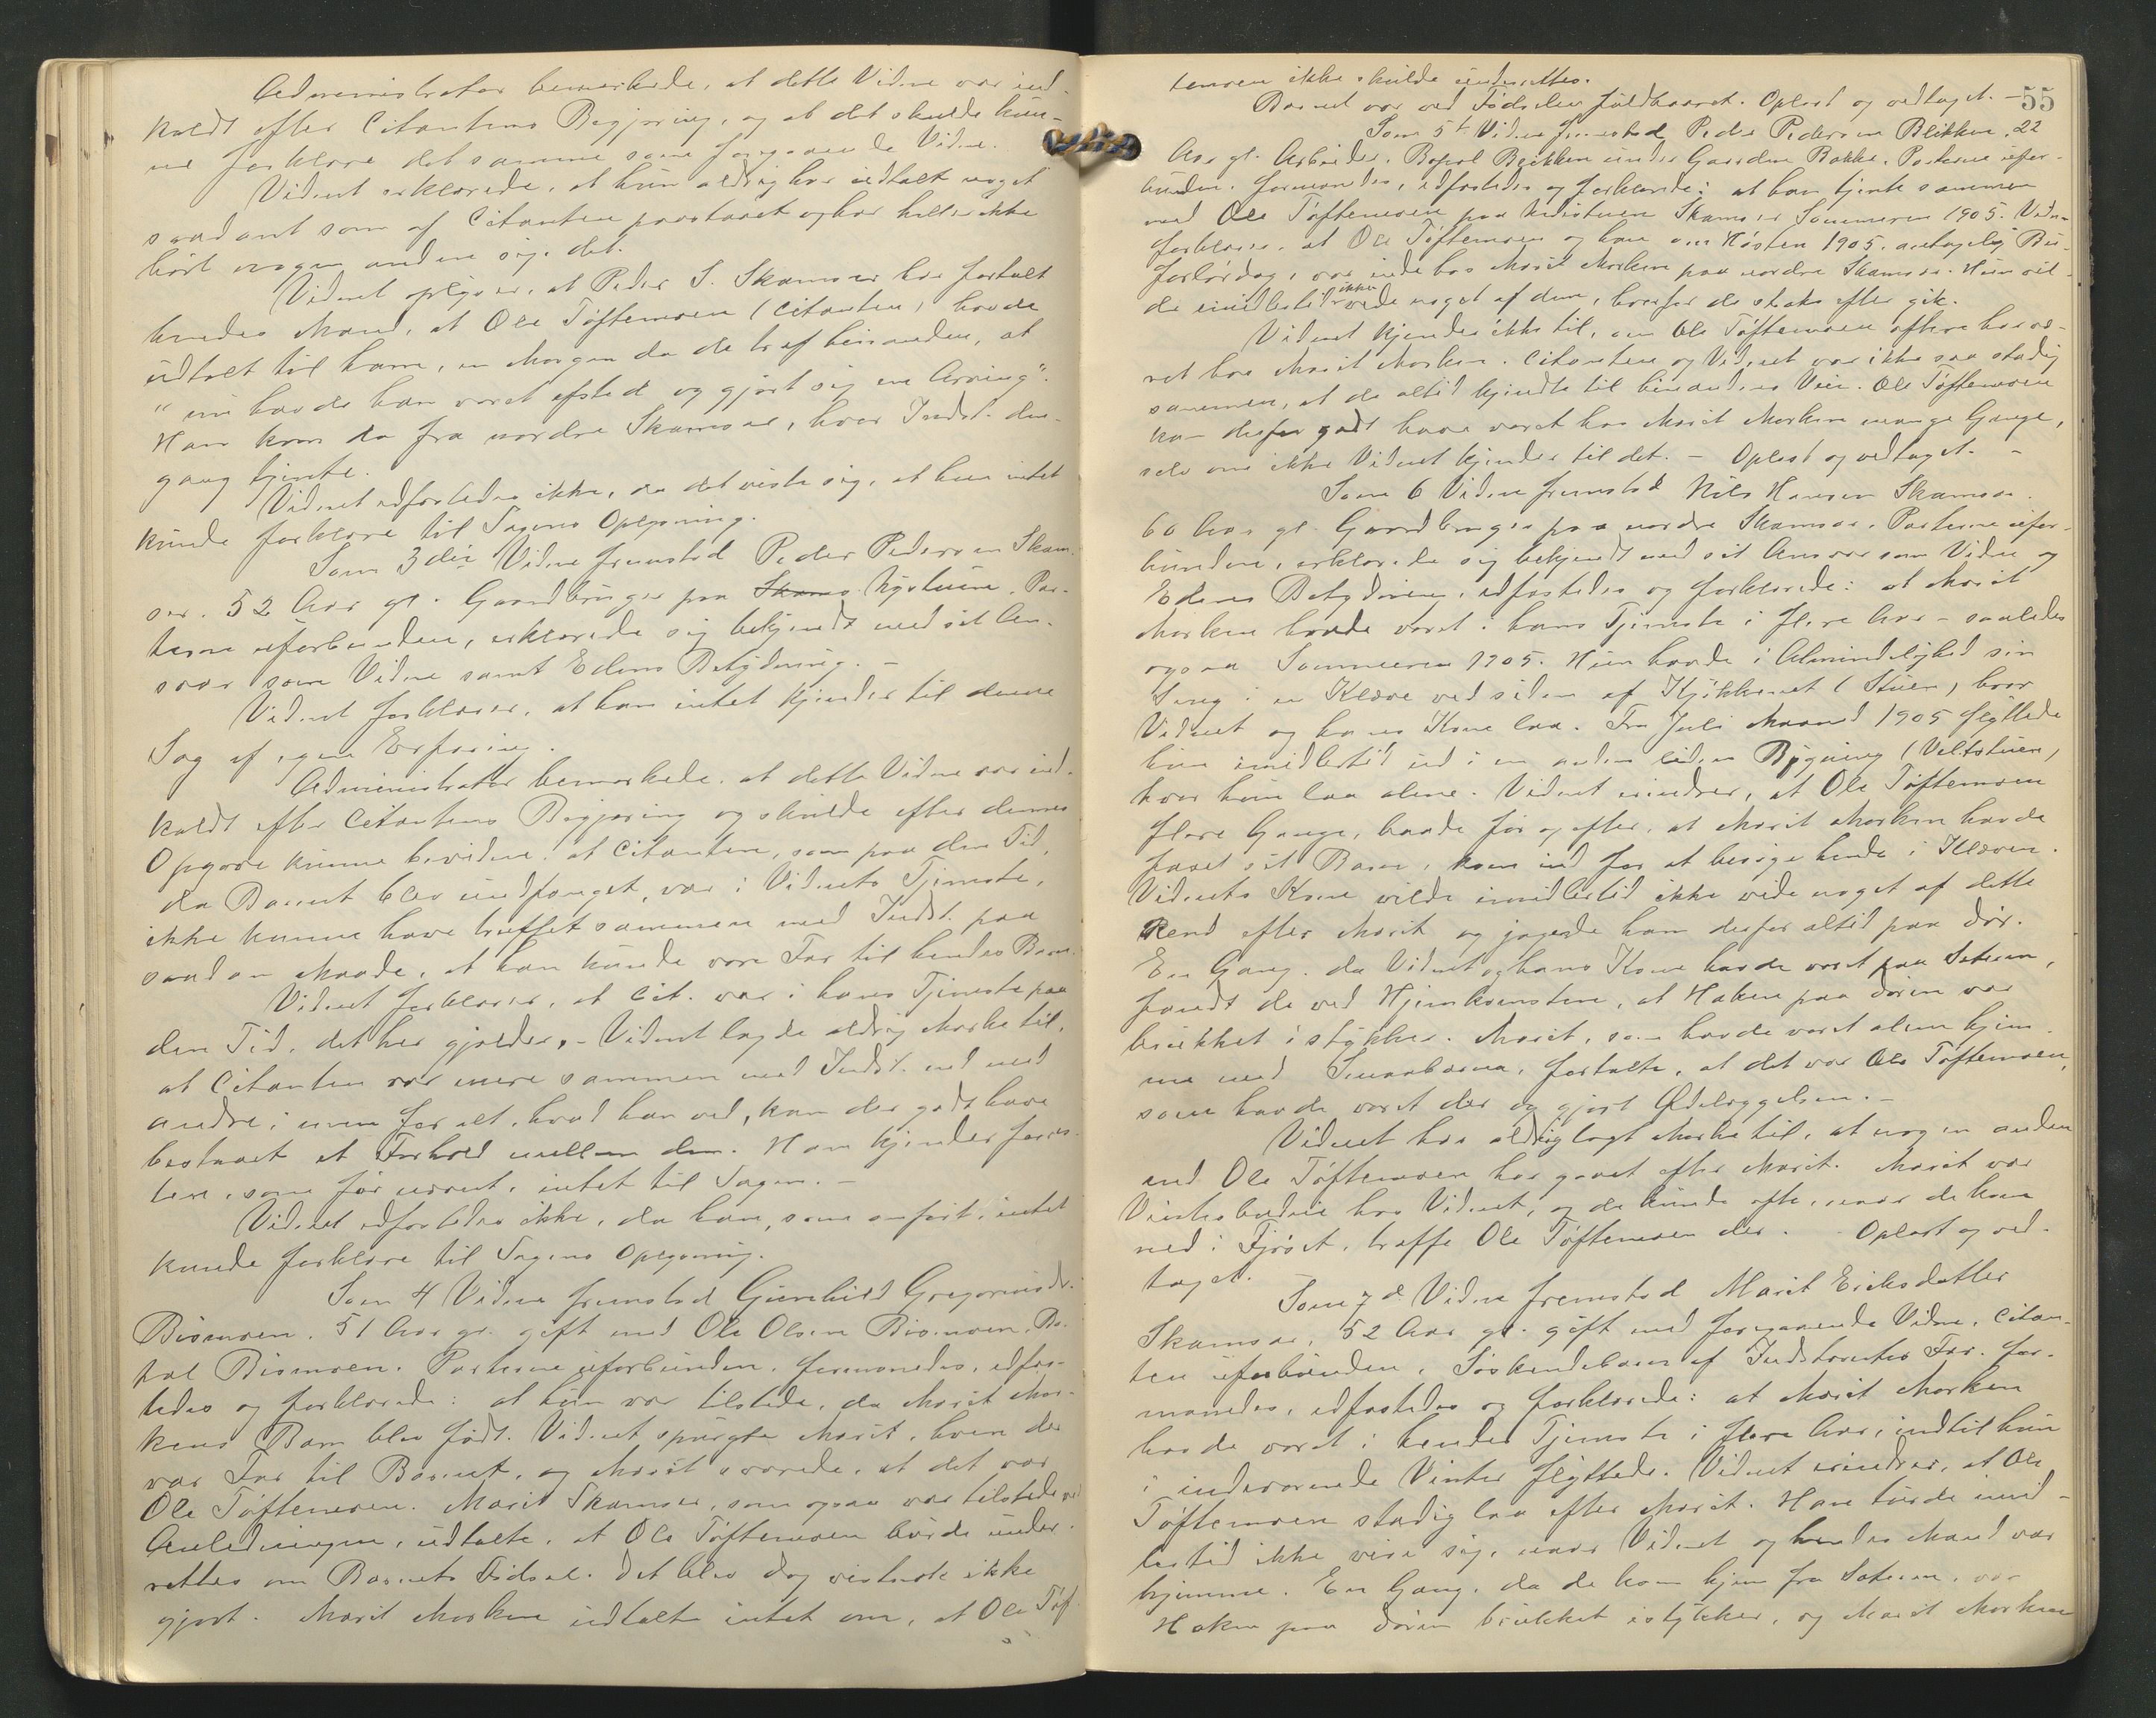 Administrator bemærkede, at dette Vidne var ind-
kaldt efter Citantens Begjæring, og at det skulde kun-
ne forklare det samme som foregaaende Vidne.
Vidnet erklærede, at hun aldrig har udtalt noget
saadant som af Citanten paastaaet og har heller ikke
hørt nogen anden sige det.
Vidnet oplyser, at Peder S. Skamsar har fortalt
hendes Mand, at Ole Tøftemoen (Citanten) havde
udtalt til ham, en Morgen da de traf hinanden, at
"nu havde han været afsted og gjort sig en Arving".
Han kom da fra nordre Skamsar, hvor Indst. den-
gang tjente.
Vidnet edfæstedes ikke, da det viste sig, at hun intet
kunde forklare til Sagens Oplysning.
Som 3die Vidne fremstod Peder Pedersen Skam-
sar. 52 Aar gl. Gaardbruger paa Skams Nystuen. Par-
terne uforbunden, erklærede sig bekjendt med sit An-
svar som Vidne samt Edens Betydning. –
Vidnet forklarer, at han intet kjender til denne
Sag af egen Erfaring.
Administrator bemærkede, at dette Vidne var ind-
kaldt efter Citantens Begjæring og skulde efter dennes
Opgave kunne bevidne, at Citanten, som paa den Tid,
da Barnet blev undfanget, var i Vidnets Tjeneste,
ikke kunne have truffet sammen med Indst. paa
saadan Maade, at han kunde være Far til hendes Barn.
Vidnet forklarer, at Cit. var i hans Tjeneste paa
den Tid, det her gjælder. – Vidnet lagde aldrig Mærke til,
at Citanten var mere sammen med Indst. end med
andre; men for alt, hvad han ved, kan der godt have
bestaaet et Forhold mellem dem. Han kjender forøv-
len, som før nævnt, intet til Sagen. –
Vidnet edfæstedes ikke, da han, som anført, intet
kunde forklare til Sagens Oplysning.
Som 4 Vidne fremstod Gunhild Gregoriusdt.
Bismoen. 51 Aar gl. gift med Ole Olsen Bismoen. Bo-
pæl Bismoen. Parterne uforbunden, formanedes, edfæs-
tedes og forklarede: at hun var tilstede, da Marit Mor-
kens Barn blev født. Vidnet spurgte Marit, hvem der
var Far til Barnet, og Marit svarede, at det var
Ole Tøftemoen. Marit Skamsar, som ogsaa var tilstede ved
Anledningen, udtalte, at Ole Tøftemoen burde under-
rettes om Barnets Fødsel. Det blev dog vistnok ikke
gjort. Marit Morken udtalte intet om, at Ole Tøf-
55
temoen ikke skulde underrettes.
Barnet var ved Fødselen fuldbaaret. Oplæst og vedtaget. –
Som 5te Vidne fremstod Peder Pedersen Blekken, 22
Aar gl. Arbeider. Bopæl Blekken under Gaarden Bakke. Parterne ufor-
bunden, formanedes, edfæstedes og forklarede: at han tjente sammen
med Ole Tøftemoen paa Nystuen Skamsar Sommeren 1905. Vidnet
forklarer, at Ole Tøftemoen og han om Høsten 1905, antagelig Bu-
førlørdag, var inde hos Marit Morken paa nordre Skamsar. Hun vil-
de imidlertid ikke vide noget af dem, hvorfor de straks efter gik.
Vidnet kjender ikke til, om Ole Tøftemoen oftere har væ-
ret hos Marit Morken. Citanten og Vidnet var ikke saa stadig
sammen, at de altid kjendte til hinandens Veie. Ole Tøftemoen
kan derfor godt have været hos Marit Morken mange Gange,
selv om ikke Vidnet kjender til det. – Oplæst og vedtaget. –
Som 6 Vidne fremstod Nils Hansen Skamsar.
60 Aar gl. Gaardbruger paa nordre Skamsar. Parterne ufor-
bunden, erklærede sig bekjendt med sit Ansvar som Vidne og
Edens Betydning, edfæstedes og forklarede: at Marit
Morken havde været i hans Tjeneste i flere Aar – saaledes
ogsaa Sommeren 1905. Hun havde i Almindelighed sin
Seng i en Kleve ved siden af Kjøkkenet (Stuen), hvor
Vidnet og hans Kone laa. Fra Juli Maaned 1905 flyttede
hun imidlertid ud i en anden liden Bygning (Veltstuen)
hvor hun laa alene. Vidnet erindrer, at Ole Tøftemoen
flere Gange, baade før og efter, at Marit Morken havde
faaet sit Barn, kom ind for at besøge hende i Kleven.
Vidnets Kone vilde imidlertid ikke vide noget af dette
Rend efter Marit og jagede ham derfor altid paa Dør.
En Gang, da Vidnet og hans Kone havde været paa Sæteren,
fandt de ved Hjemkomsten, at Haken paa Døren var
brukket i stykker. Marit, som havde været alene hjem-
me med Smaabarna, fortalte, at det var Ole Tøftemoen,
som havde været der og gjort Ødelæggelsen. –
Vidnet har aldrig lagt Mærke til, at nogen anden
end Ole Tøftemoen har gaaet efter Marit. Marit var
hos Vidnet, og de kunde ofte, naar de kom
ned i Fjøset, træffe Ole Tøftemoen der. – Oplæst og ved-
taget.
Som 7de Vidne fremstod Marit Eriksdatter
Skamsar, 52 Aar gl. gift med foregaaende Vidne, Citan-
ten uforbunden, Søskendebarn af Indstevntes Far. For-
manedes, edfæstedes og forklarede: at Marit Morken
havde været i hendes Tjeneste i flere Aar, indtil hun
i indeværende Vinter flyttede. Vidnet erindrer, at Ole
Tøftemoen stadig laa efter Marit. Han turde imid-
lertid ikke vise sig, naar Vidnet og hendes Mand var
hjemme. En Gang, da de kom hjem fra Sæteren, var
Haken paa Døren brukket istykker, og Marit Morken